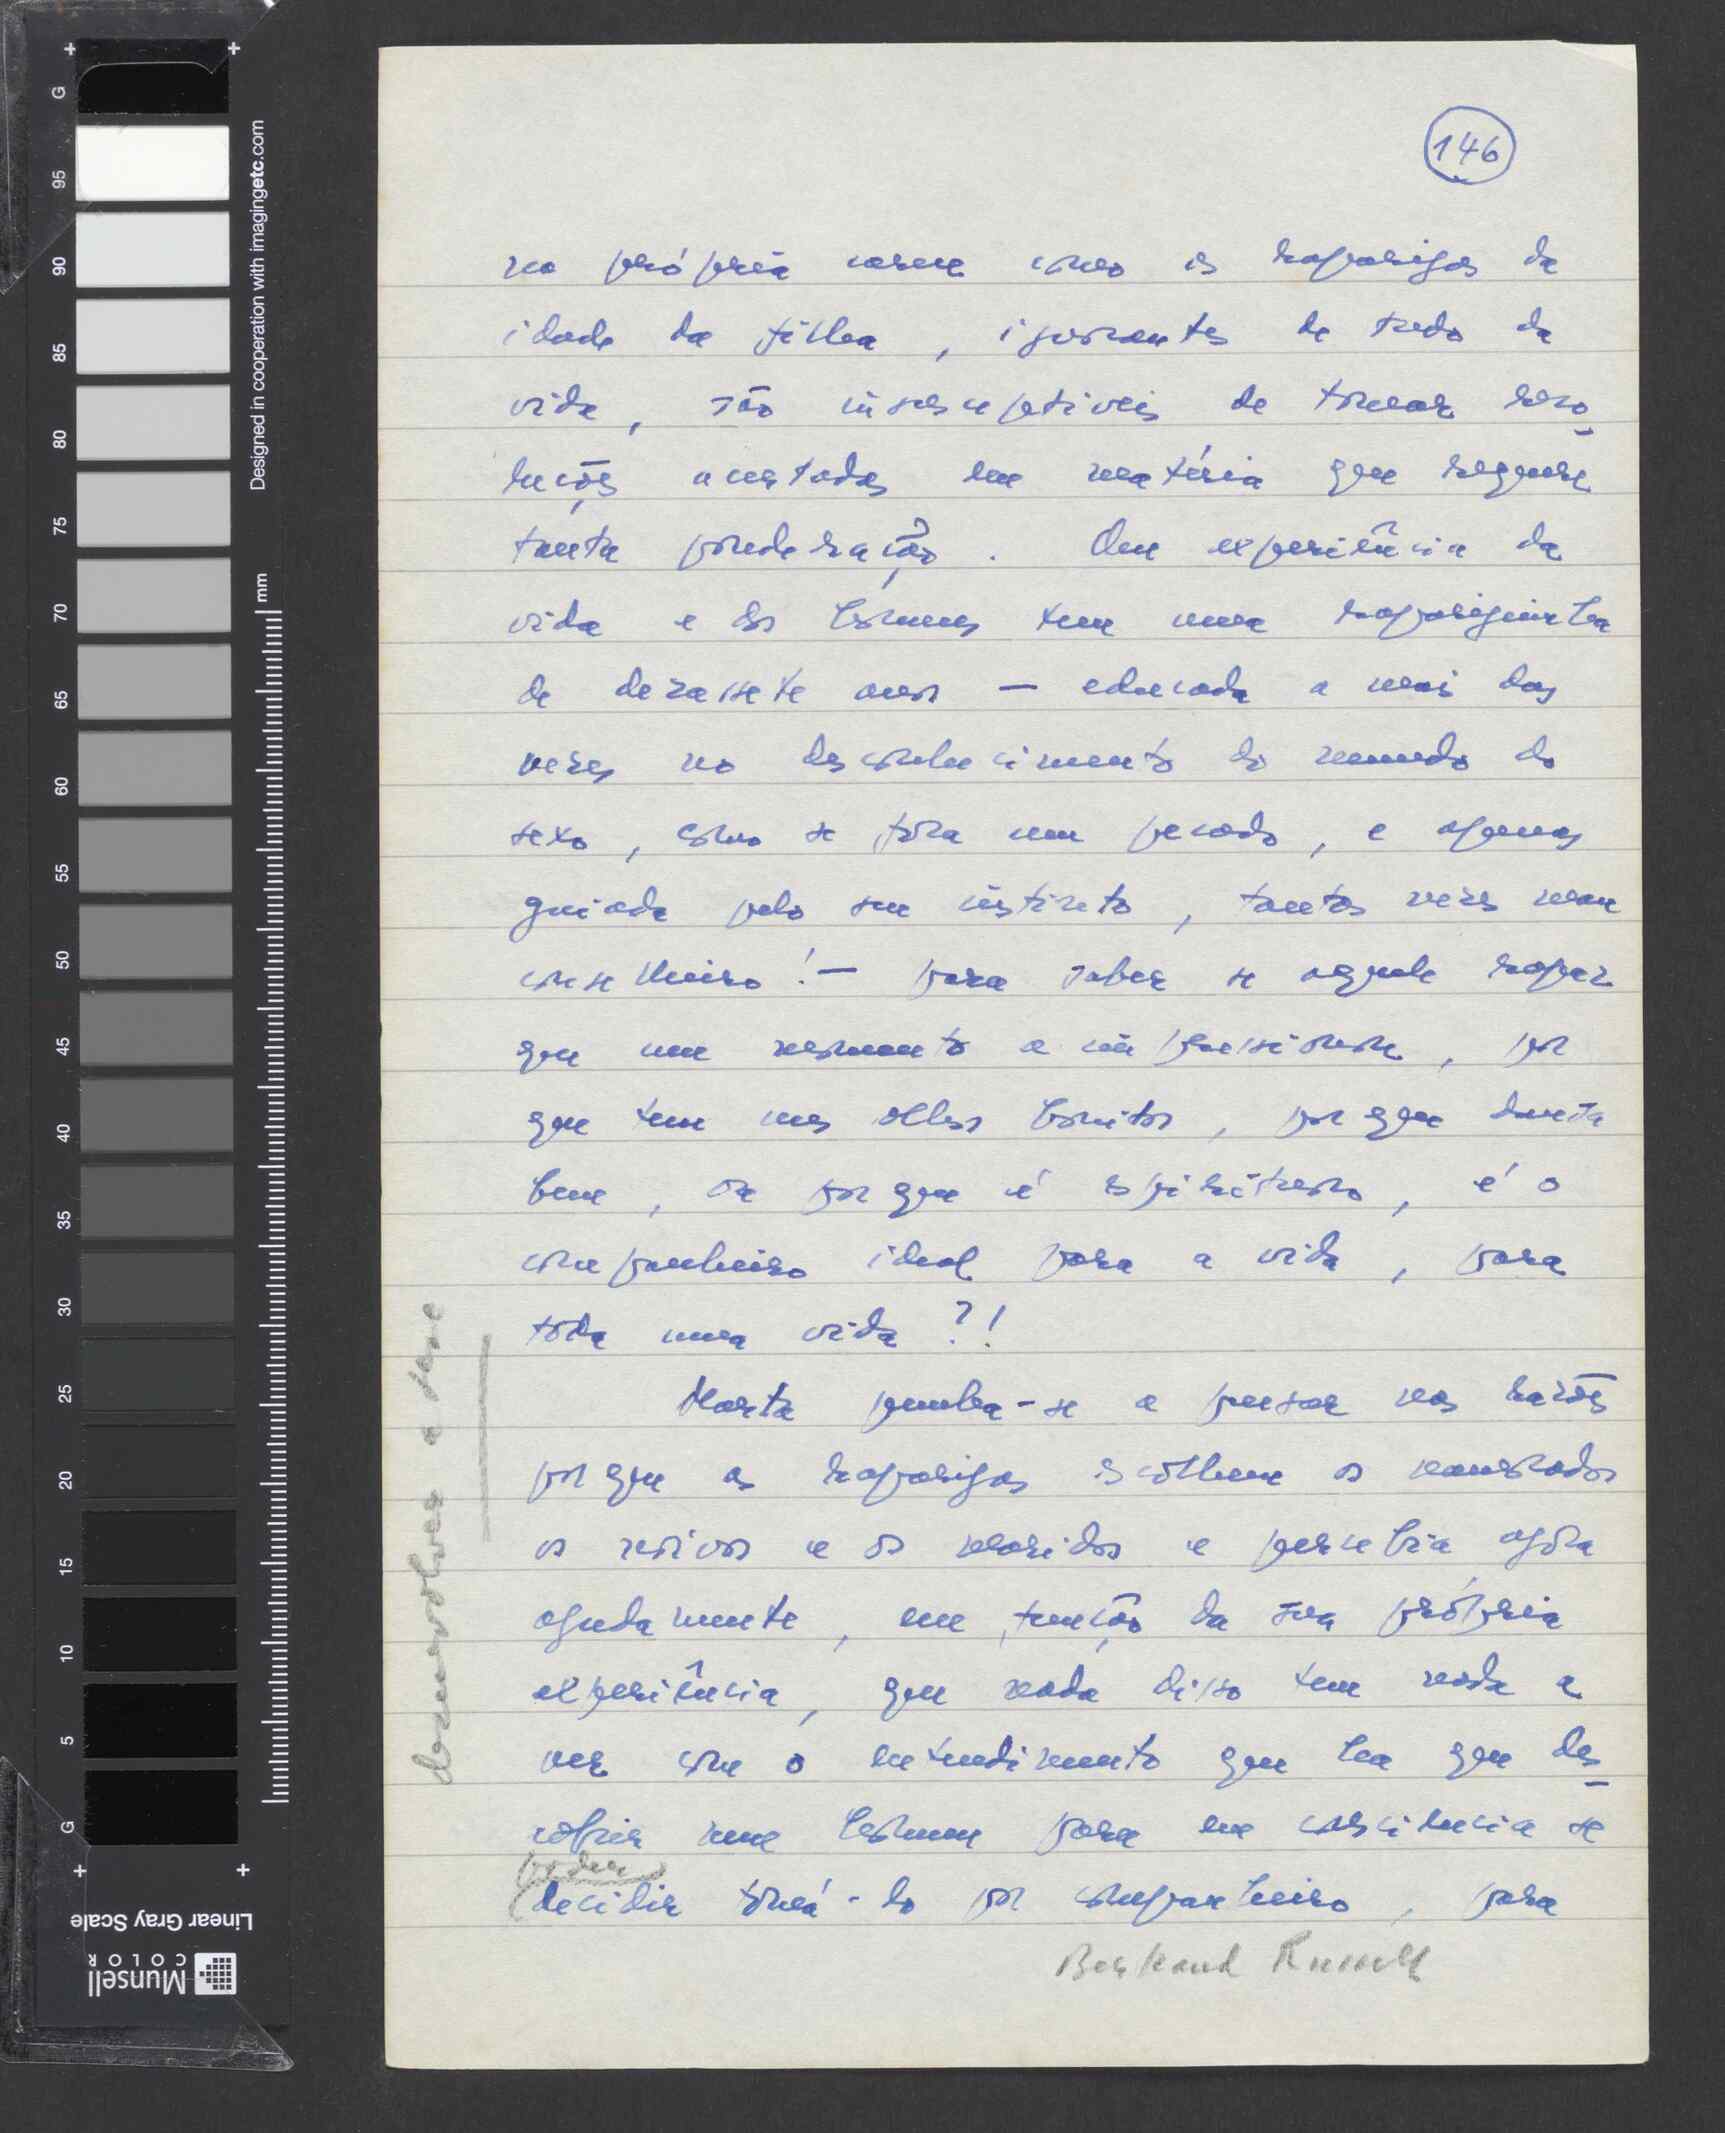 146
na própria carne como as raparigas da
idade da filha, ignorantes de tudo da
vida, são insusceptiveis de tomar reso-
luções acertadas em matéria que requere
tanta ponderação. Que experiência da
vida e dos homens tem uma rapariguinha
de dezassete anos — educada a mais das
vezes no desconhecimento do mundo do
sexo, como se fôra um pecado, e apenas
guiada pelo seu instinto, tantas vezes mau
conselheiro! — para saber se aquele rapaz
que um momento a impressionou, por
que tem uns olhos bonitos, porque dança
bem, ou porque é espirituoso, é o
companheiro ideal para a vida, para
toda uma vida?!
Marta punha-se a pensar nas razões
porque as raparigas escolhem os namorados
os noivos e os maridos e percebia agora
agudamente, em função da sua própria
experiência, que nada disso tem nada a
ver com o entendimento que ha que des-
cobrir num homem para em consciencia se
poder
decidir tomá-lo por companheiro, para
Bertrand Russell
desenvolver a tese
Designed in cooperation with imagingetc.com
mm
G
95
90
85
80
75
70
65
60
55
50
45
40
35
30
25
20
15
10
5
G
Linear Gray Scale
Munsell
COLOR